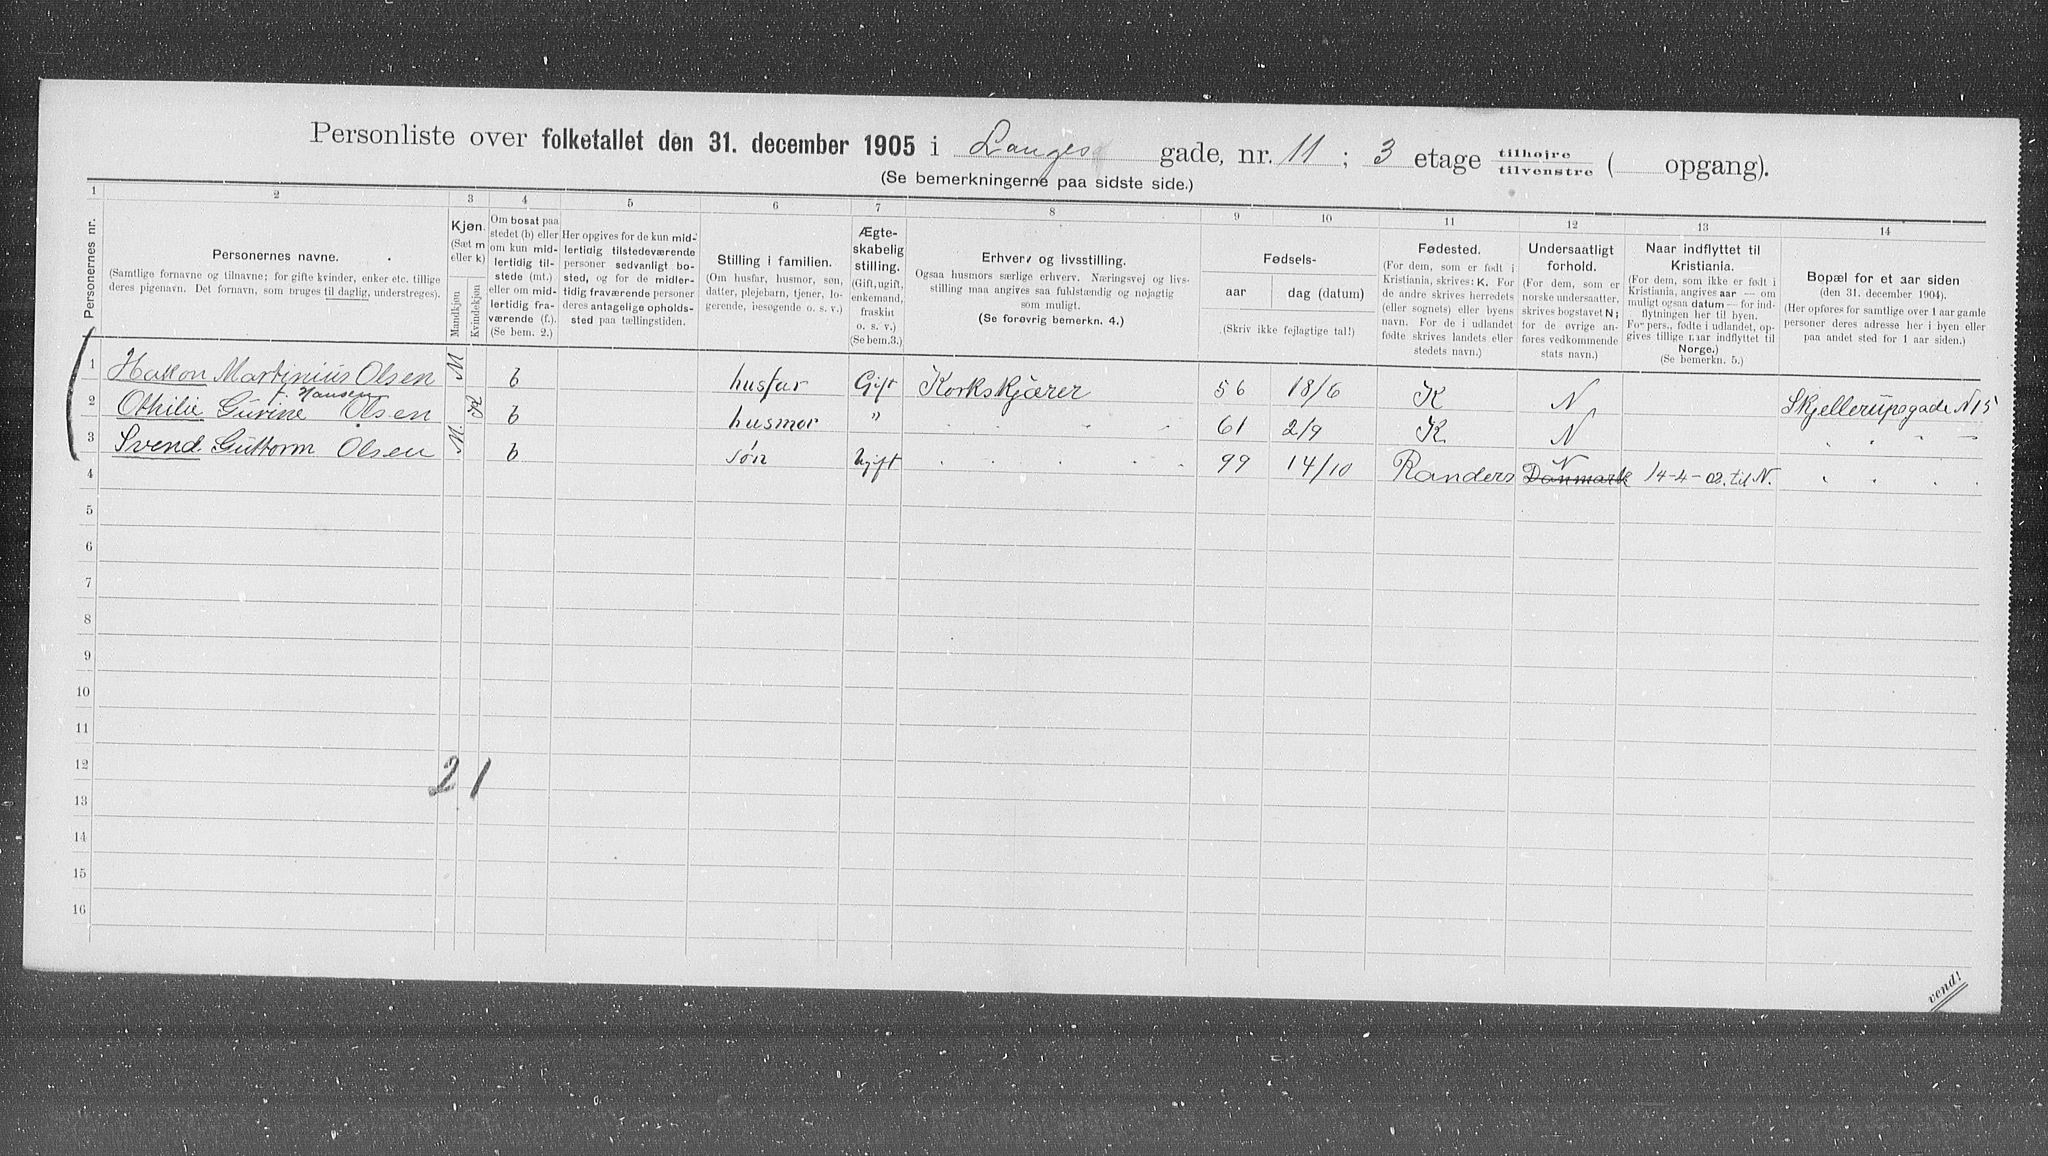 Personliste over folketallet den 31. december 1905 i Langes gade, nr. 11 ; 3 etage tilhøjre tilvenstre ( opgang).
(Se bemerkningerne paa sidste side.)
1 2 3 4 5 6 7 8 9 10 11 12 13 14
Personernes nr.
Personernes navne.
(Samtlige fornavne og tilnavne; for gifte kvinder, enker etc. tillige
deres pigenavn. Det fornavn, som bruges til daglig, understreges).
Kjøn.
(Sæt m
eller k)
Mandkjøn
Kvindekjøn
Om bosat paa
stedet (b) eller
om kun mid-
lertidig til-
stede (mt.)
eller om mid-
lertidig fra-
værende (f.).
(Se bem. 2.)
Her opgives for de kun mid-
lertidig tilstedeværende
personer sedvanligt bo-
sted, og for de midler-
tidig fraværende personer
deres antagelige opholds-
sted paa tællingstiden.
Stilling i familien.
(Om husfar, husmor, søn,
datter, plejebarn, tjener, lo-
gerende, besøgende o. s. v.)
Ægte-
skabelig
stilling.
(Gift, ugift,
enkemand,
fraskilt
o. s. v.)
(Se bem.3.)
Erhverv og livsstilling.
Ogsaa husmors særlige erhverv. Næringsvej og livs-
stilling maa angives saa fuldstændig og nøjagtig
som muligt.
(Se forøvrig bemerkn. 4.)
Fødsels-
aar dag (datum)
(Skriv ikke fejlagtige tal!)
Fødested.
(For dem, som er født i
Kristiania, skrives: K. For
de andre skrives herredets
(eller sognets) eller byens
navn. For de i udlandet
fødte skrives landets eller
stedets navn.)
Undersaatligt
forhold.
(For dem, som er
norske undersaatter,
skrives bogstavet N;
for de øvrige an-
føres vedkommende
stats navn.)
Naar indflyttet til
Kristiania.
(For dem, som ikke er født i
Kristiania, angives aar — om
muligt ogsaa datum — for ind-
flytningen her til byen.
For pers., fødte i udlandet, op-
gives tillige naar indflyttet til
Norge.)
(Se bemerkn. 5.)
Bopæl for et aar siden
(den 31. december 1904).
(Her opføres for samtlige over 1 aar gamle
personer deres adresse her i byen eller
paa andet sted for 1 aar siden.)
1 Hakon Martinius Olsen M b husfar Gift Korkskjærer 56 18/6 K N Skjellerupsgade N 15
f. Hansen
2 Othilie Gurine Olsen K b husmor " 61 2/9 K N
3 Svend Guttorm Olsen M. b søn Ugift 99 14/10 Randers N Danmark 14-4-02. til N.
4
5
6
7
8
9
10
11
12
2 1
13
14
15
16
vend!